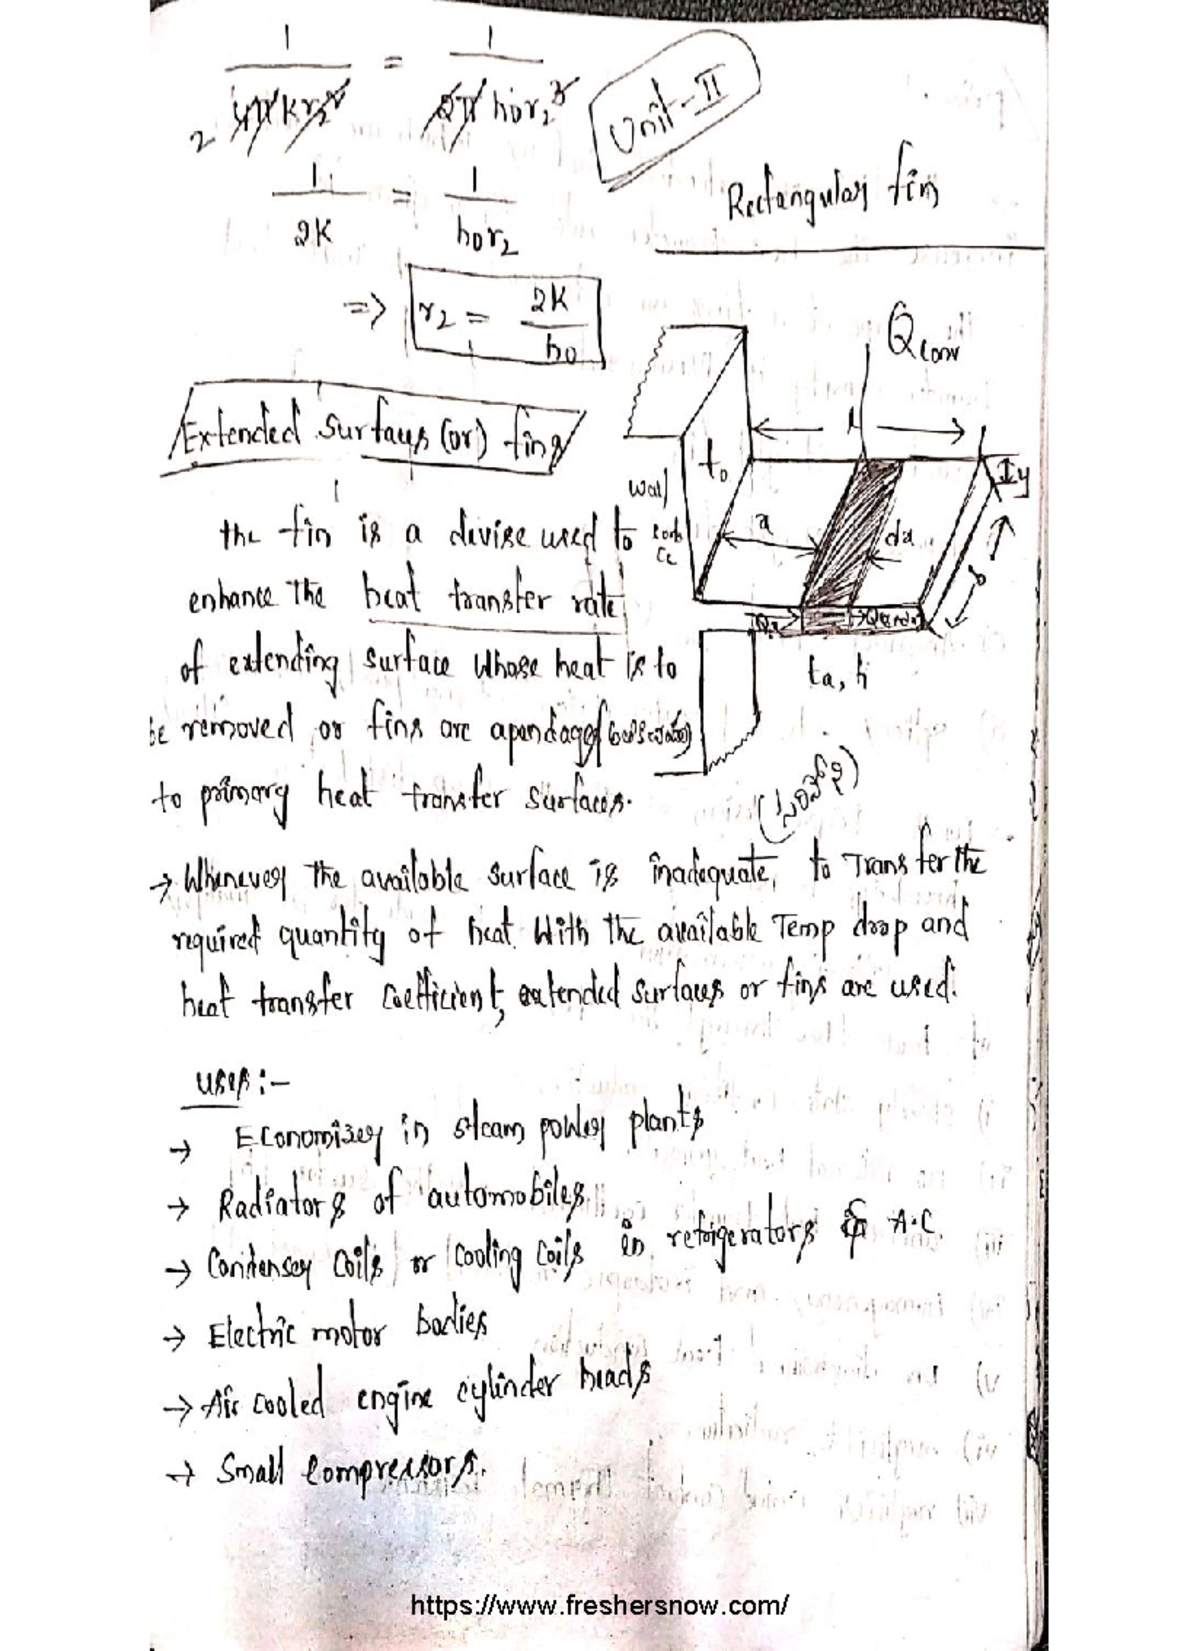 1/4πkr₂² = 1/2πh₀r₂³
2
Unit-II
1/2K = 1/h₀r₂
Rectangular fin
=> r₂ = 2K/h₀
Qconv
Extended Surfaces (or) fins
l
t₀
y
Wall
x
dx
b
Qx
ta, h
the fin is a devise used to
enhance the heat transfer rate
of extending surface whose heat is to
be removed or fins are apendages
to primary heat transfer surfaces.
→ Whenever the available surface is inadequate, to Transfer the
required quantity of heat With the available Temp drop and
heat transfer coefficient, extended surfaces or fins are used.
uses :-
→ Economizer in steam power plants
→ Radiators of automobiles
→ Condenser coils or cooling coils in refrigerators & A.C
→ Electric motor bodies
→ Air cooled engine cylinder heads
→ Small compressors.
https://www.freshersnow.com/